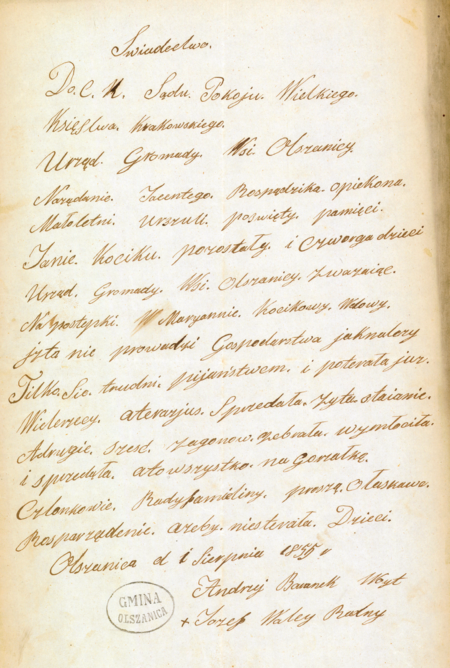 Swiadectwo.
Do. C. K. Sądu. Pokoju. Wielkiego.
Księstwa. Krakowskiego.
Urząd. Gromady. Wsi Olszanicy.
Narządanie. Jacentego. Rospędzika. opiekona.
Małoletni. Urszuli. poswięty. pamięci.
Janie. Kociku. pozostały. i Czworga dzieci
Urząd. Gromady. Wsi. Olszanicy. zwazaiąc.
Na Prostępki. W Maryannie. Kocikowy. Wdowy.
jzta nie prowadzi Gospodarstwa jaknalezy
Tilka. Sie. trudni. pijaństwem. i poterała juz.
Wielerzecy. aterazjus. Sprzedała. zyta. staianie.
Adrugie. szesc. zagonow. zebrała. wymłociła.
i sprzedała. atowszystko. na Gorzałkę.
Członkowie. Rady familiny. proszą. Ołaskawe.
Rosparządzenie. azeby. niesterała. Dzieci.
Olszanica d 1 Sierpnia 1855 r
Andrzej Baranek Woyt
+ Jozef Waley Radny
GMINA
OLSZANICA